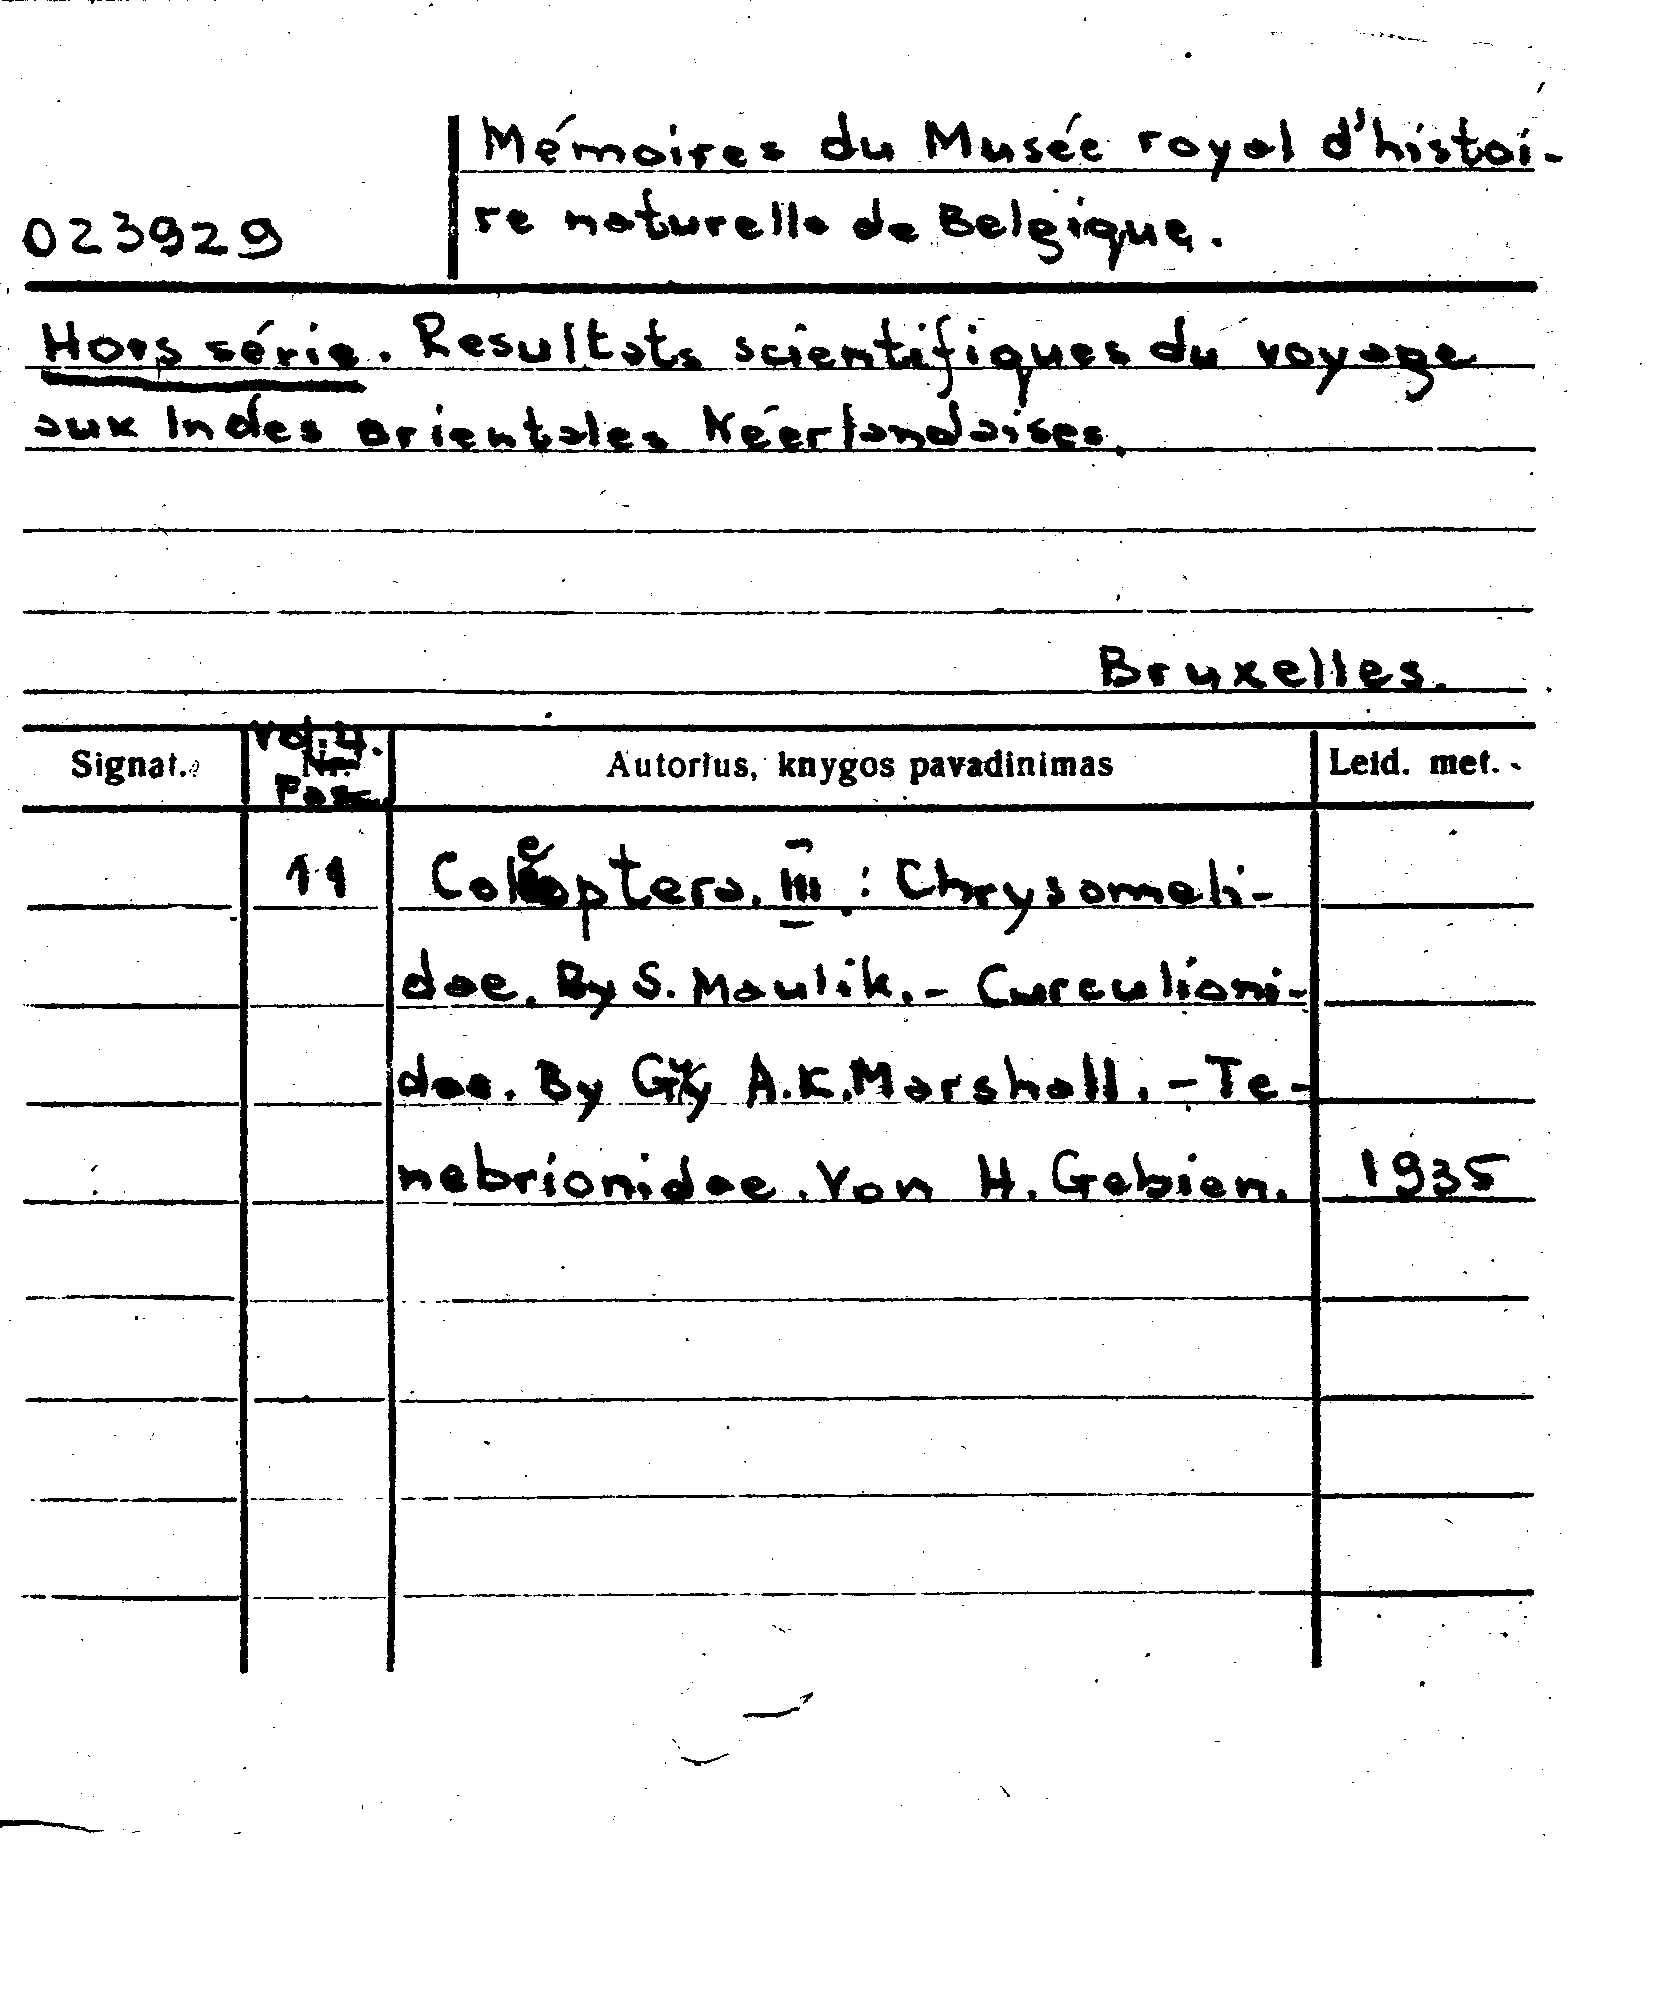 Mémoires du Musée royal d'histoi-
023929
re naturelle de Belgique.
Hors série. Resultats scientifiques du voyage
aux Indes orientales Néerlandaises.
Bruxelles.
Vol. 4.
Signat. Nr. Autorius, knygos pavadinimas Leid. met.
Fasc.
11 Coleoptera. III : Chrysomeli-
dae. By S. Maulik. - Curculioni-
dae. By Gʸ A.K. Marshall. - Te-
nebrionidae. Von H. Gebien. 1935